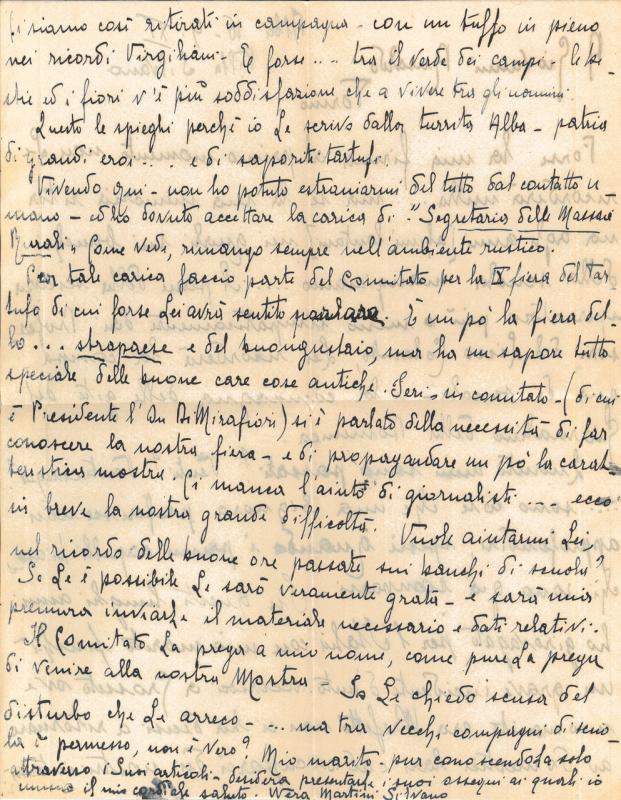 Ci siamo così ritirati in campagna - con un tuffo in pieno
nei ricordi Virgiliani - E forse .... tra il verde dei campi - le be-
stie ed i fiori v'è più soddisfazione che a vivere tra gli uomini.
Questo le spieghi perchè io Le scrivo dalla turrita Alba - patria
di grandi eroi .... e di saporiti tartufi.
Vivendo qui - non ho potuto estraniarmi del tutto dal contatto u-
mano - ed ho dovuto accettare la carica di "Segretaria delle Massaie
Rurali" Come vede, rimango sempre nell'ambiente rustico.
Per tale carica faccio parte del Comitato per la IX fiera del Tar-
tufo di cui forse Lei avrà sentito parlare. È un pò la fiera del-
lo ... strapaese e del buongustaio, ma ha un sapore tutto
speciale, delle buone care cose antiche. Ieri - in comitato - (di cui
è Presidente l'On Di Mirafiori) si è parlato della necessità di far
conoscere la nostra fiera - e di propagandare un pò la carat-
teristica mostra. Ci manca l'aiuto di giornalisti .... ecco
in breve la nostra grande difficoltà. Vuole aiutarmi Lei,
nel ricordo delle buone ore passate sui banchi di scuola?
Se Le è possibile Le sarò veramente grata - e sarà mia
premura inviarLe il materiale necessario e dati relativi.
Il Comitato La prega a mio nome, come pure La prega
di venire alla nostra Mostra - Io Le chiedo scusa del
disturbo che Le arreco - ... ma tra vecchi compagni di scuo-
la è permesso, non è vero? Mio marito - pur conoscendoLa solo
attraverso i Suoi articoli - desidera presentarLe i suoi ossequi ai quali io
unisco il mio cordiale saluto. Wera Martini Silvano